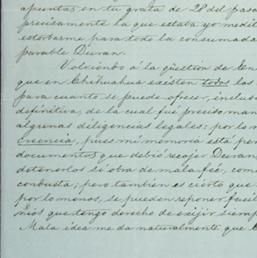 apuntas en tu grata de 28 del pasa
precisamente la que estaba yo medit
estorbarme para todo la consumada
parable Duran.
Volviendo a la qüestion de En
que en Chihuahua existen todos los
para cuanto se puede ofrecer, inclus
definitiva, de la cual fué preciso man
algunas diligencias legales: por lo m
creencia, pues mi memoria está per
documentos que debió recojer Duran,
detenerlos si obra de mala fé, como
conducta; pero tambien es cierto que
por lo menos, se pueden reponer facil
nios que tengo derecho de exijir siemp
Mala idea me da naturalmente que